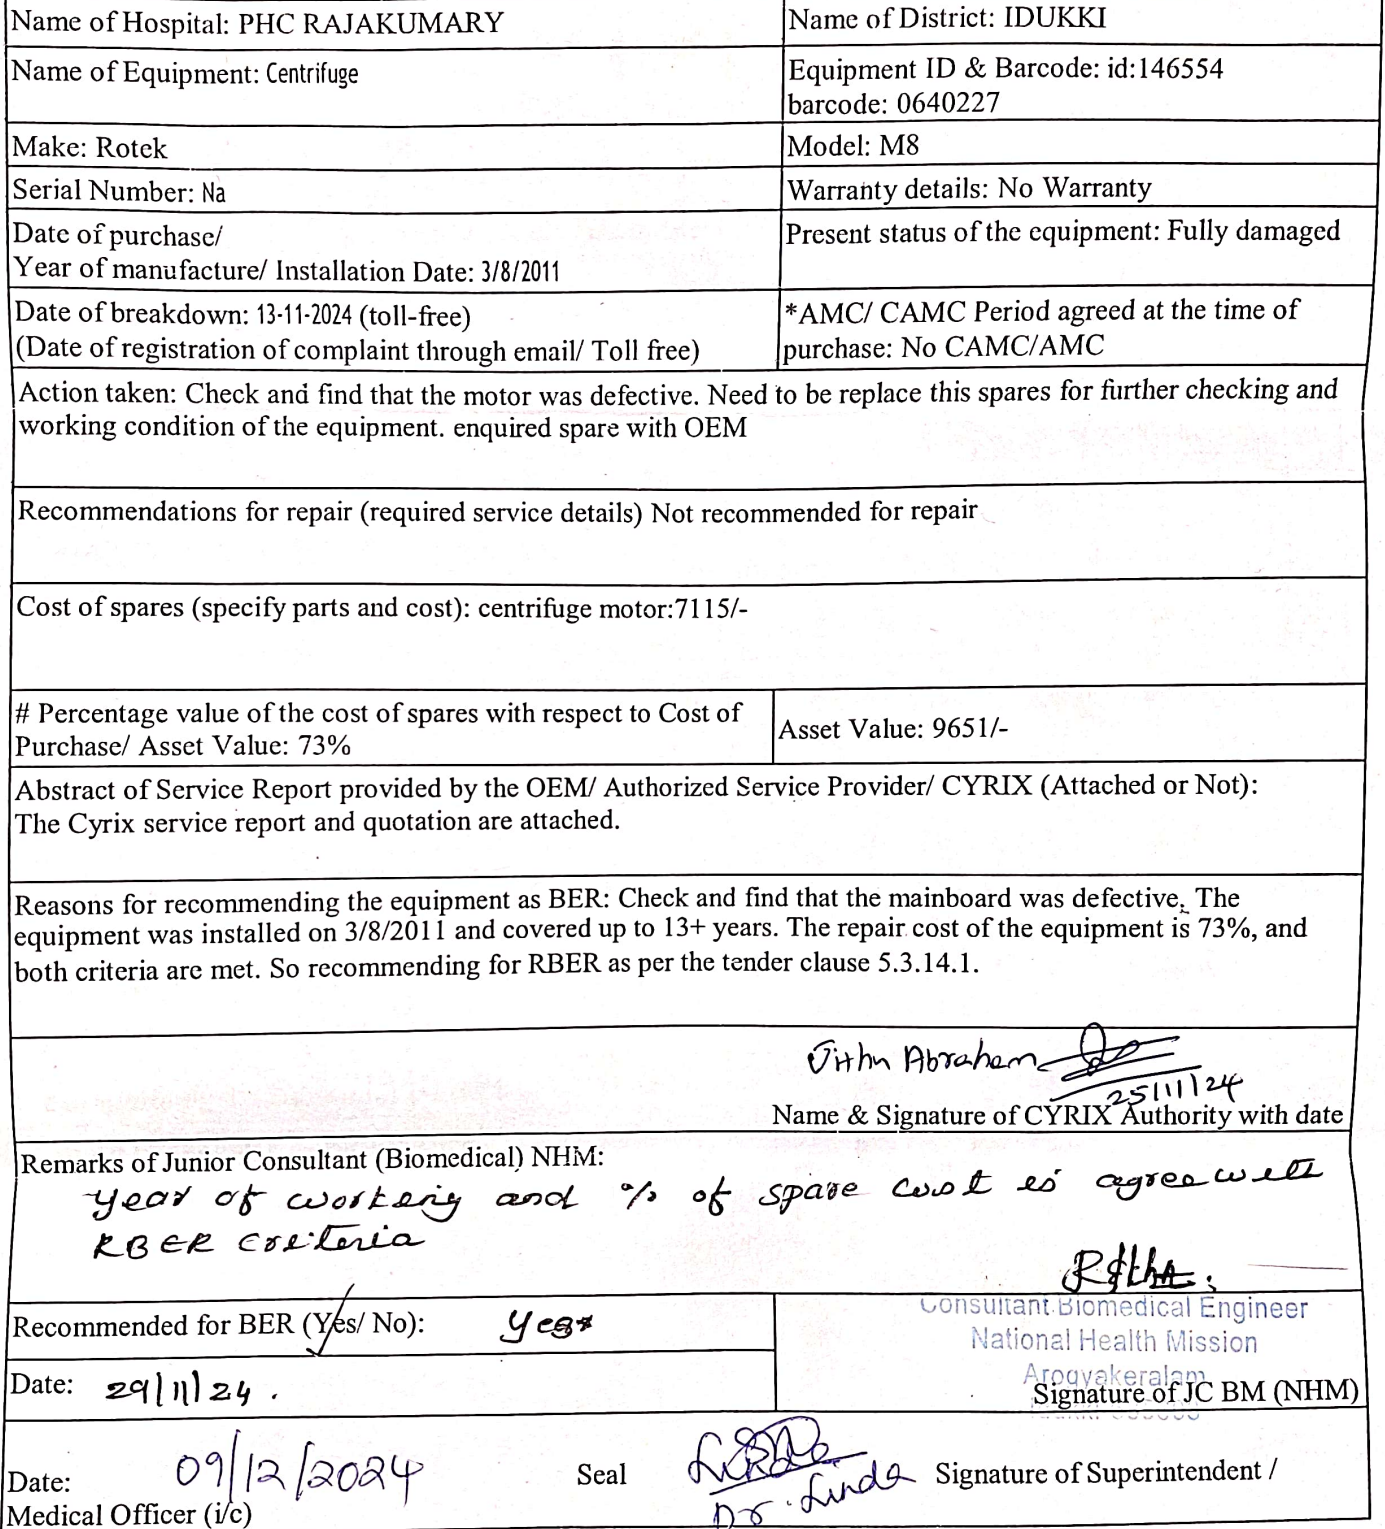 Name of Hospital: PHC RAJAKUMARY
Name of District: IDUKKI
Name of Equipment: Centrifuge
Equipment ID & Barcode: id:146554
barcode: 0640227
Make: Rotek
Model: M8
Serial Number: Na
Warranty details: No Warranty
Date of purchase/
Year of manufacture/ Installation Date: 3/8/2011
Present status of the equipment: Fully damaged
Date of breakdown: 13-11-2024 (toll-free)
(Date of registration of complaint through email/ Toll free)
*AMC/ CAMC Period agreed at the time of
purchase: No CAMC/AMC
Action taken: Check and find that the motor was defective. Need to be replace this spares for further checking and
working condition of the equipment. enquired spare with OEM
Recommendations for repair (required service details) Not recommended for repair
Cost of spares (specify parts and cost): centrifuge motor:7115/-
# Percentage value of the cost of spares with respect to Cost of
Purchase/ Asset Value: 73%
Asset Value: 9651/-
Abstract of Service Report provided by the OEM/ Authorized Service Provider/ CYRIX (Attached or Not):
The Cyrix service report and quotation are attached.
Reasons for recommending the equipment as BER: Check and find that the mainboard was defective. The
equipment was installed on 3/8/2011 and covered up to 13+ years. The repair cost of the equipment is 73%, and
both criteria are met. So recommending for RBER as per the tender clause 5.3.14.1.
Jithu Abraham
25/11/24
Name & Signature of CYRIX Authority with date
Remarks of Junior Consultant (Biomedical) NHM:
year of working and % of spare cost is agree with
RBER criteria
Consultant Biomedical Engineer
National Health Mission
Arogyakeralam
Signature of JC BM (NHM)
Recommended for BER (Yes/ No): Yes
Date: 29/11/24.
Date: 09/12/2024
Seal
Dr. Linda
Signature of Superintendent /
Medical Officer (i/c)